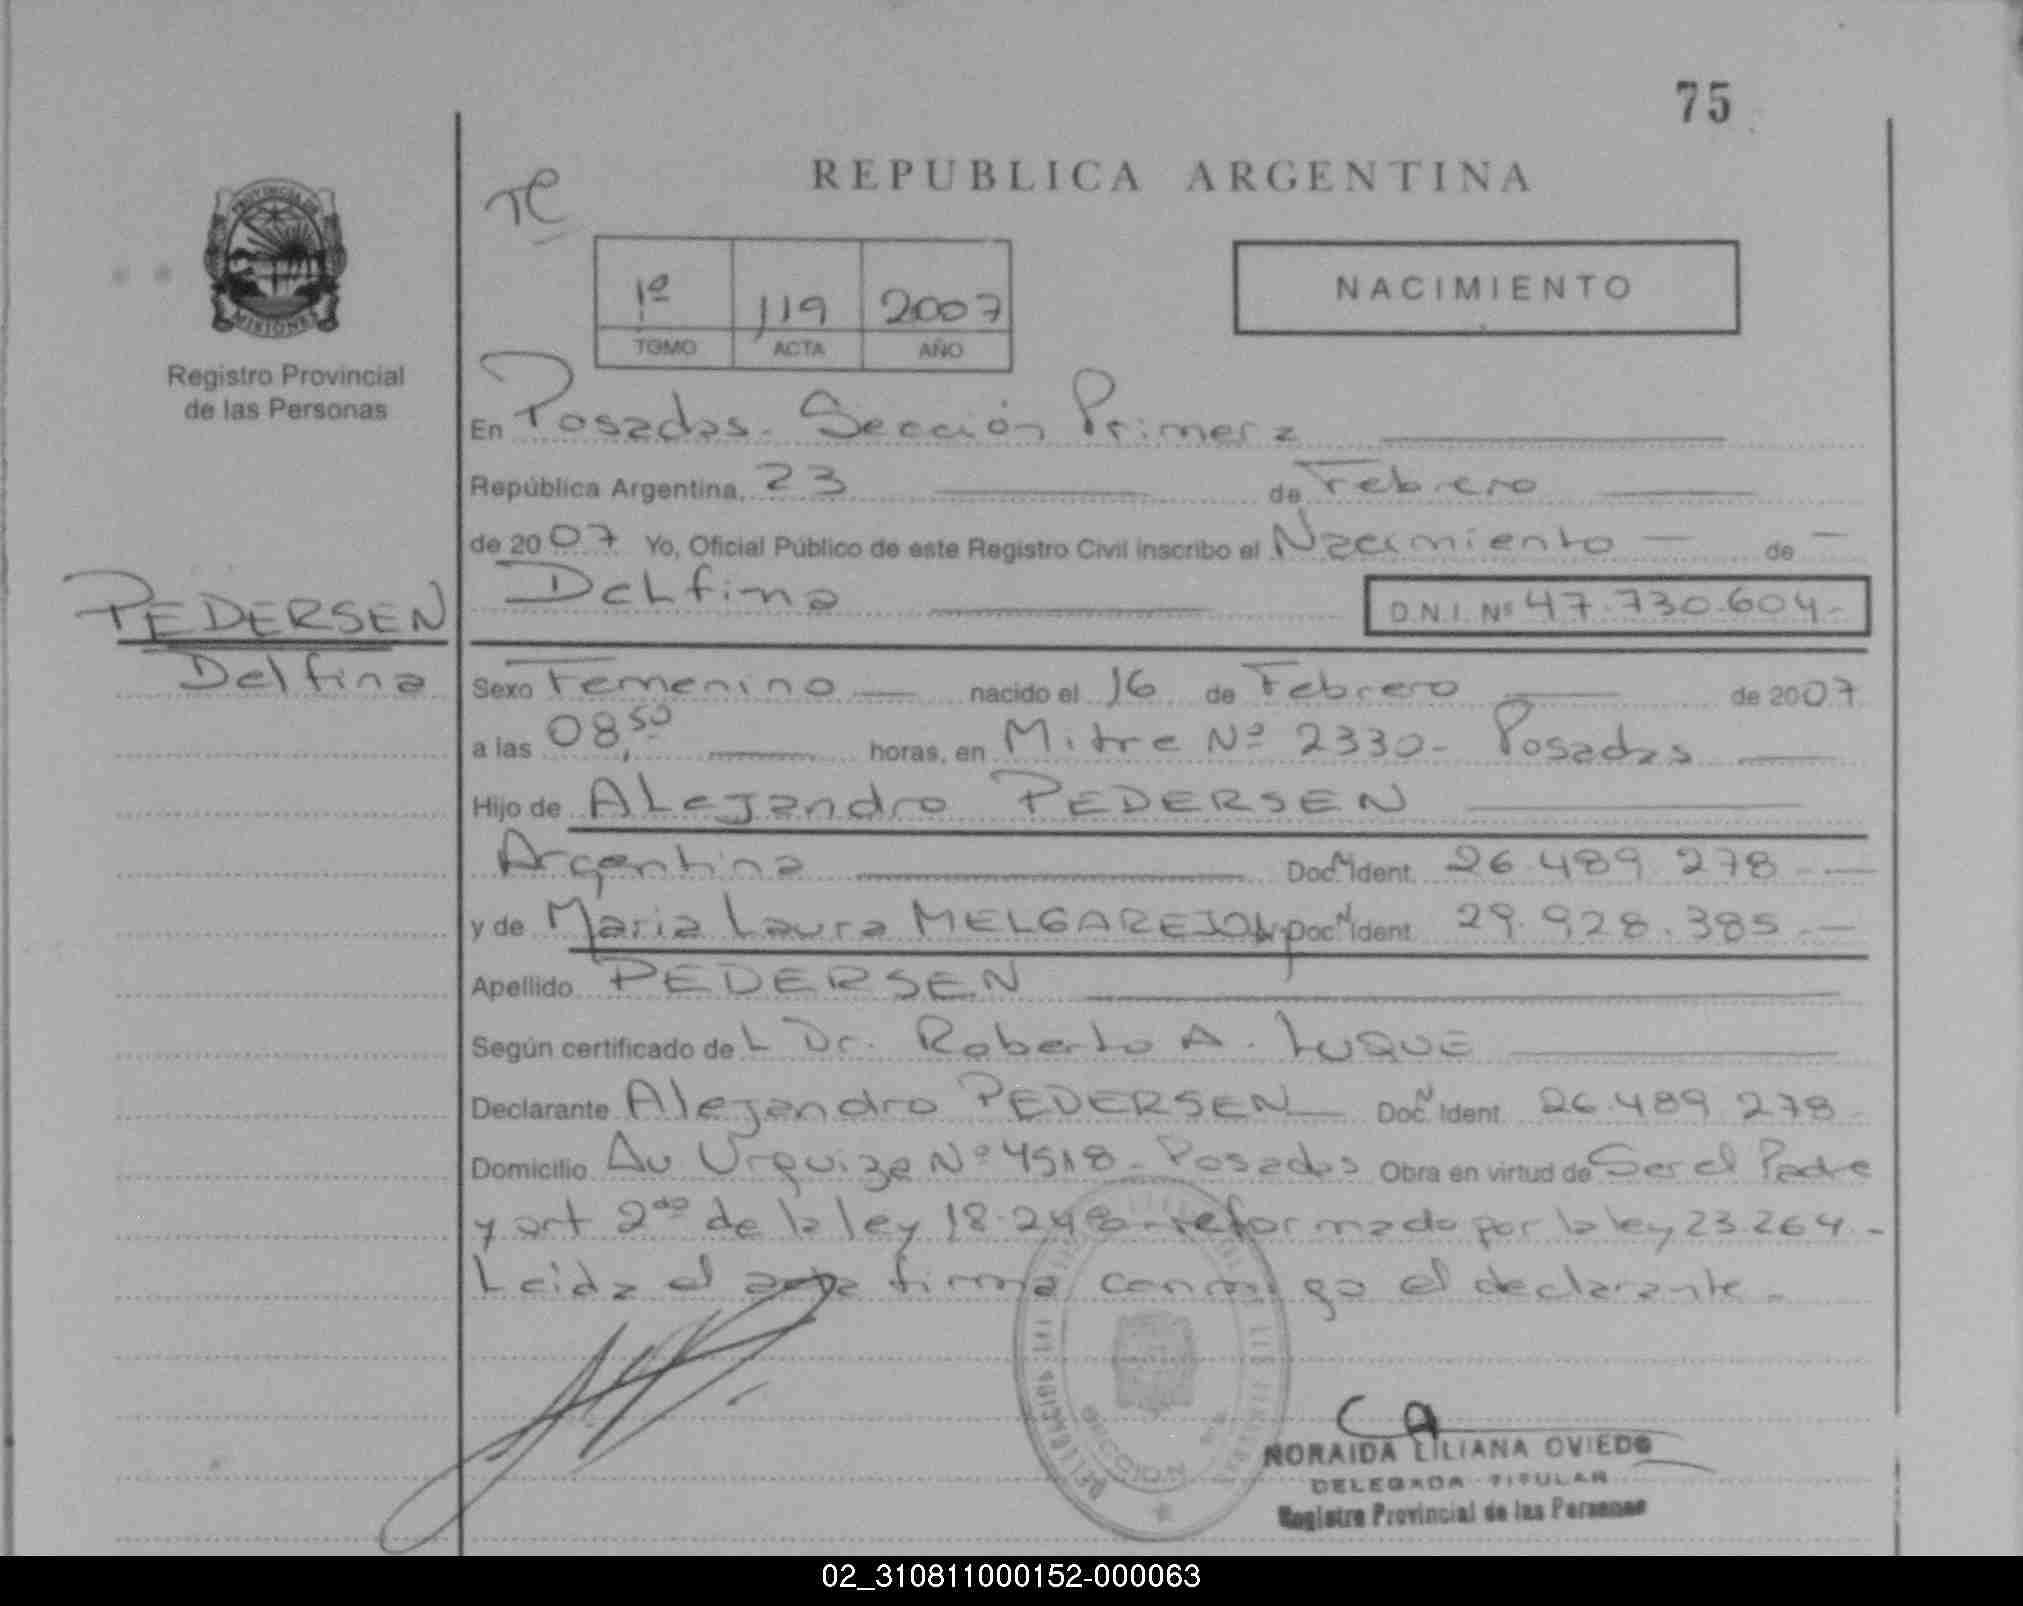 75
REPUBLICA ARGENTINA
PROVINCIA DE
MISIONES
Registro Provincial
de las Personas
1º 119 2007
TOMO ACTA AÑO
NACIMIENTO
En Posadas. Sección Primera
República Argentina, 23 de Febrero
de 2007 Yo, Oficial Público de este Registro Civil inscribo el Nacimiento — de —
Delfina D.N.I. Nº 47.730.604.-
PEDERSEN
Delfina
Sexo Femenino — nacido el 16 de Febrero de 2007
a las 08,50 horas, en Mitre Nº 2330- Posadas
Hijo de Alejandro PEDERSEN
Argentina Doc. Nº Ident. 26.489.278.-
y de Maria Laura MELGAREJO Doc. Nº Ident. 29.928.385.-
Apellido PEDERSEN
Según certificado del Dr. Roberto A. LUQUE
Declarante Alejandro PEDERSEN Doc. Nº Ident. 26.489.278-
Domicilio Av Urquiza Nº 4518- Posadas Obra en virtud de Ser el Padre
y art 2do de la ley 18.248-reformado por la ley 23.264.-
Leida el acta firma conmigo el declarante.-
NORAIDA LILIANA OVIEDO
DELEGADA TITULAR
Registro Provincial de las Personas
02_310811000152-000063